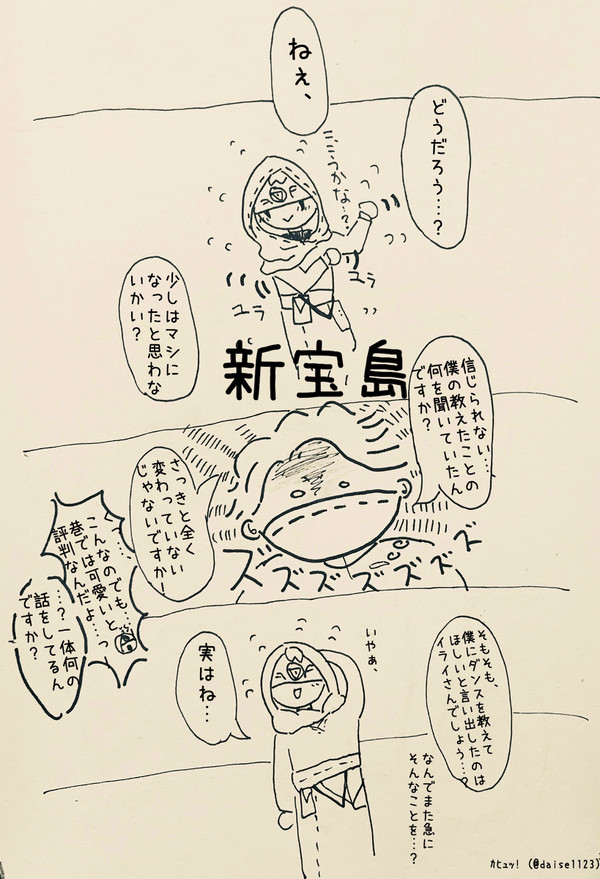 ねぇ、
どうだろう…?
こうかな…?
ユラ
ユラ
少しはマシに
なったと思わな
いかい?
新宝島
信じられない…
僕の教えたことの
何を聞いていたん
ですか?
さっきと全く
変わっていない
じゃないですかー
ズズズズズズズ
くっ…、
こんなのでも…
巷では可愛いと
評判なんだよ…っ
…?一体何の
話をしてるん
ですか?
そもそも、
僕にダンスを教えて
ほしいと言い出したのは
イライさんでしょう…?
なんでまた急に
そんなことを…?
いやぁ、
実はね…
カヒュッ! (@daise1123)